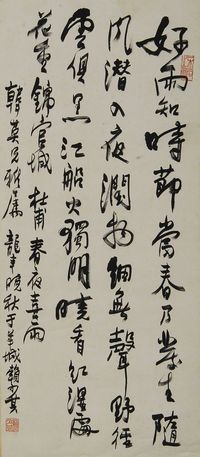 好雨知時節當春乃發生隨
風潛入夜潤物細無聲野徑
雲俱黑江船火獨明曉看紅濕處
花重錦官城 杜甫春夜喜雨
韓英兄雅屬 龍年晚秋于羊城賴少其